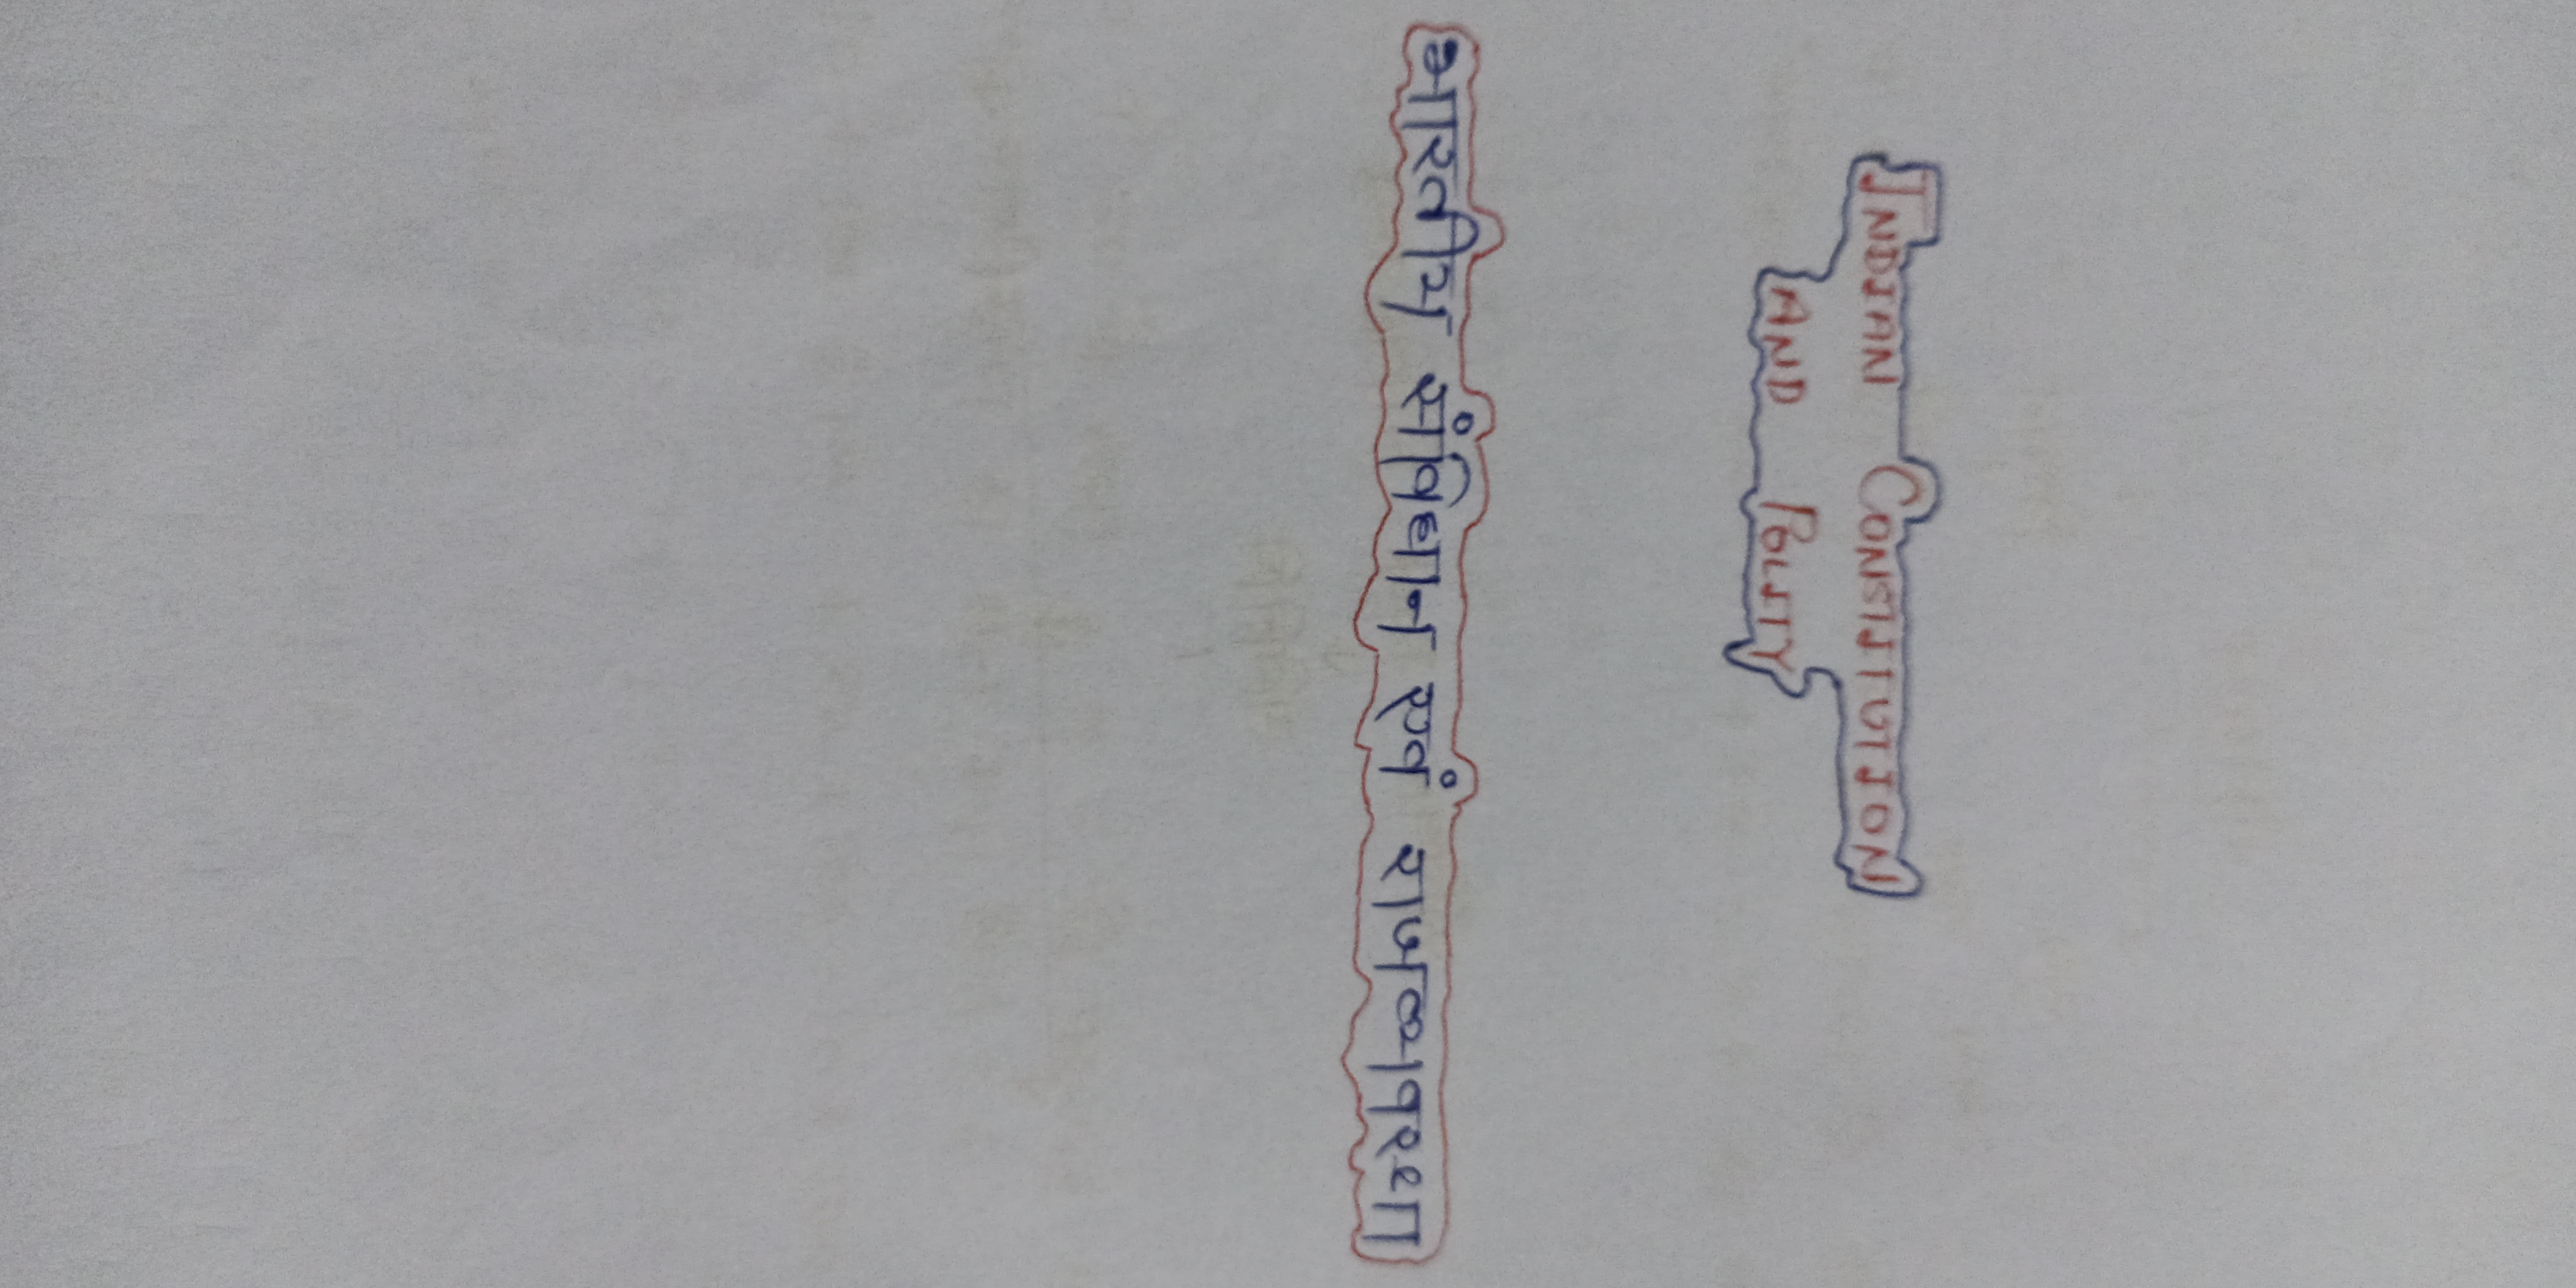 INDIAN CONSTITUTION
AND POLITY
भारतीय संविधान एवं राजव्यवस्था